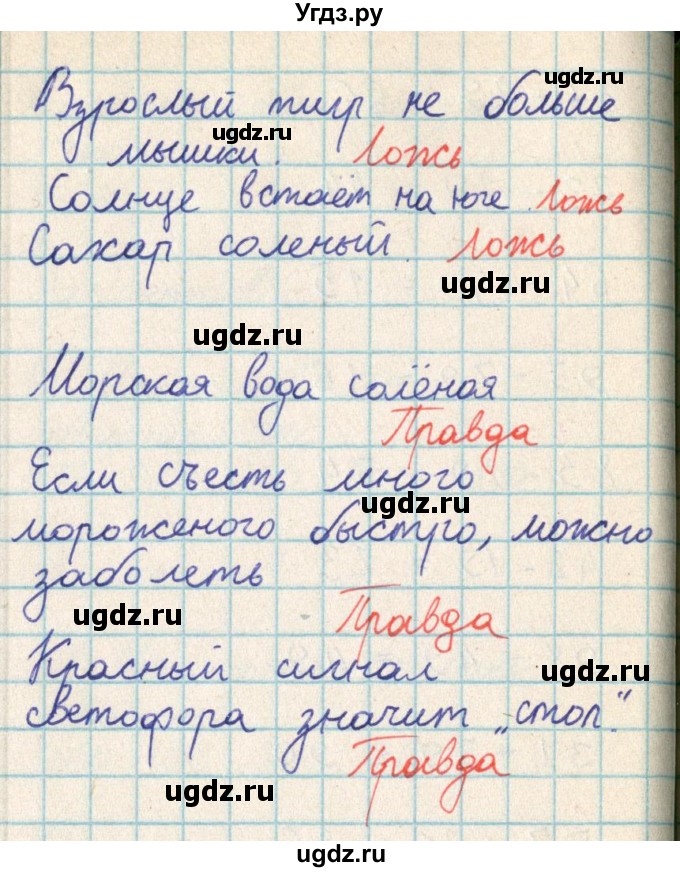 Угдз.ру
ugdz.ru
Взрослый тигр не больше
ugdz.ru
мышки. Ложь
Солнце встаёт на юге. Ложь
Сахар соленый. Ложь
ugdz.ru
ugdz.ru
Морская вода солёная
Правда
Если съесть много
ugdz.ru
мороженого быстро, можно
заболеть
ugdz.ru Правда
Красный сигнал
ugdz.ru
светофора значит „стоп“.
Правда
ugdz.ru
ugdz.ru